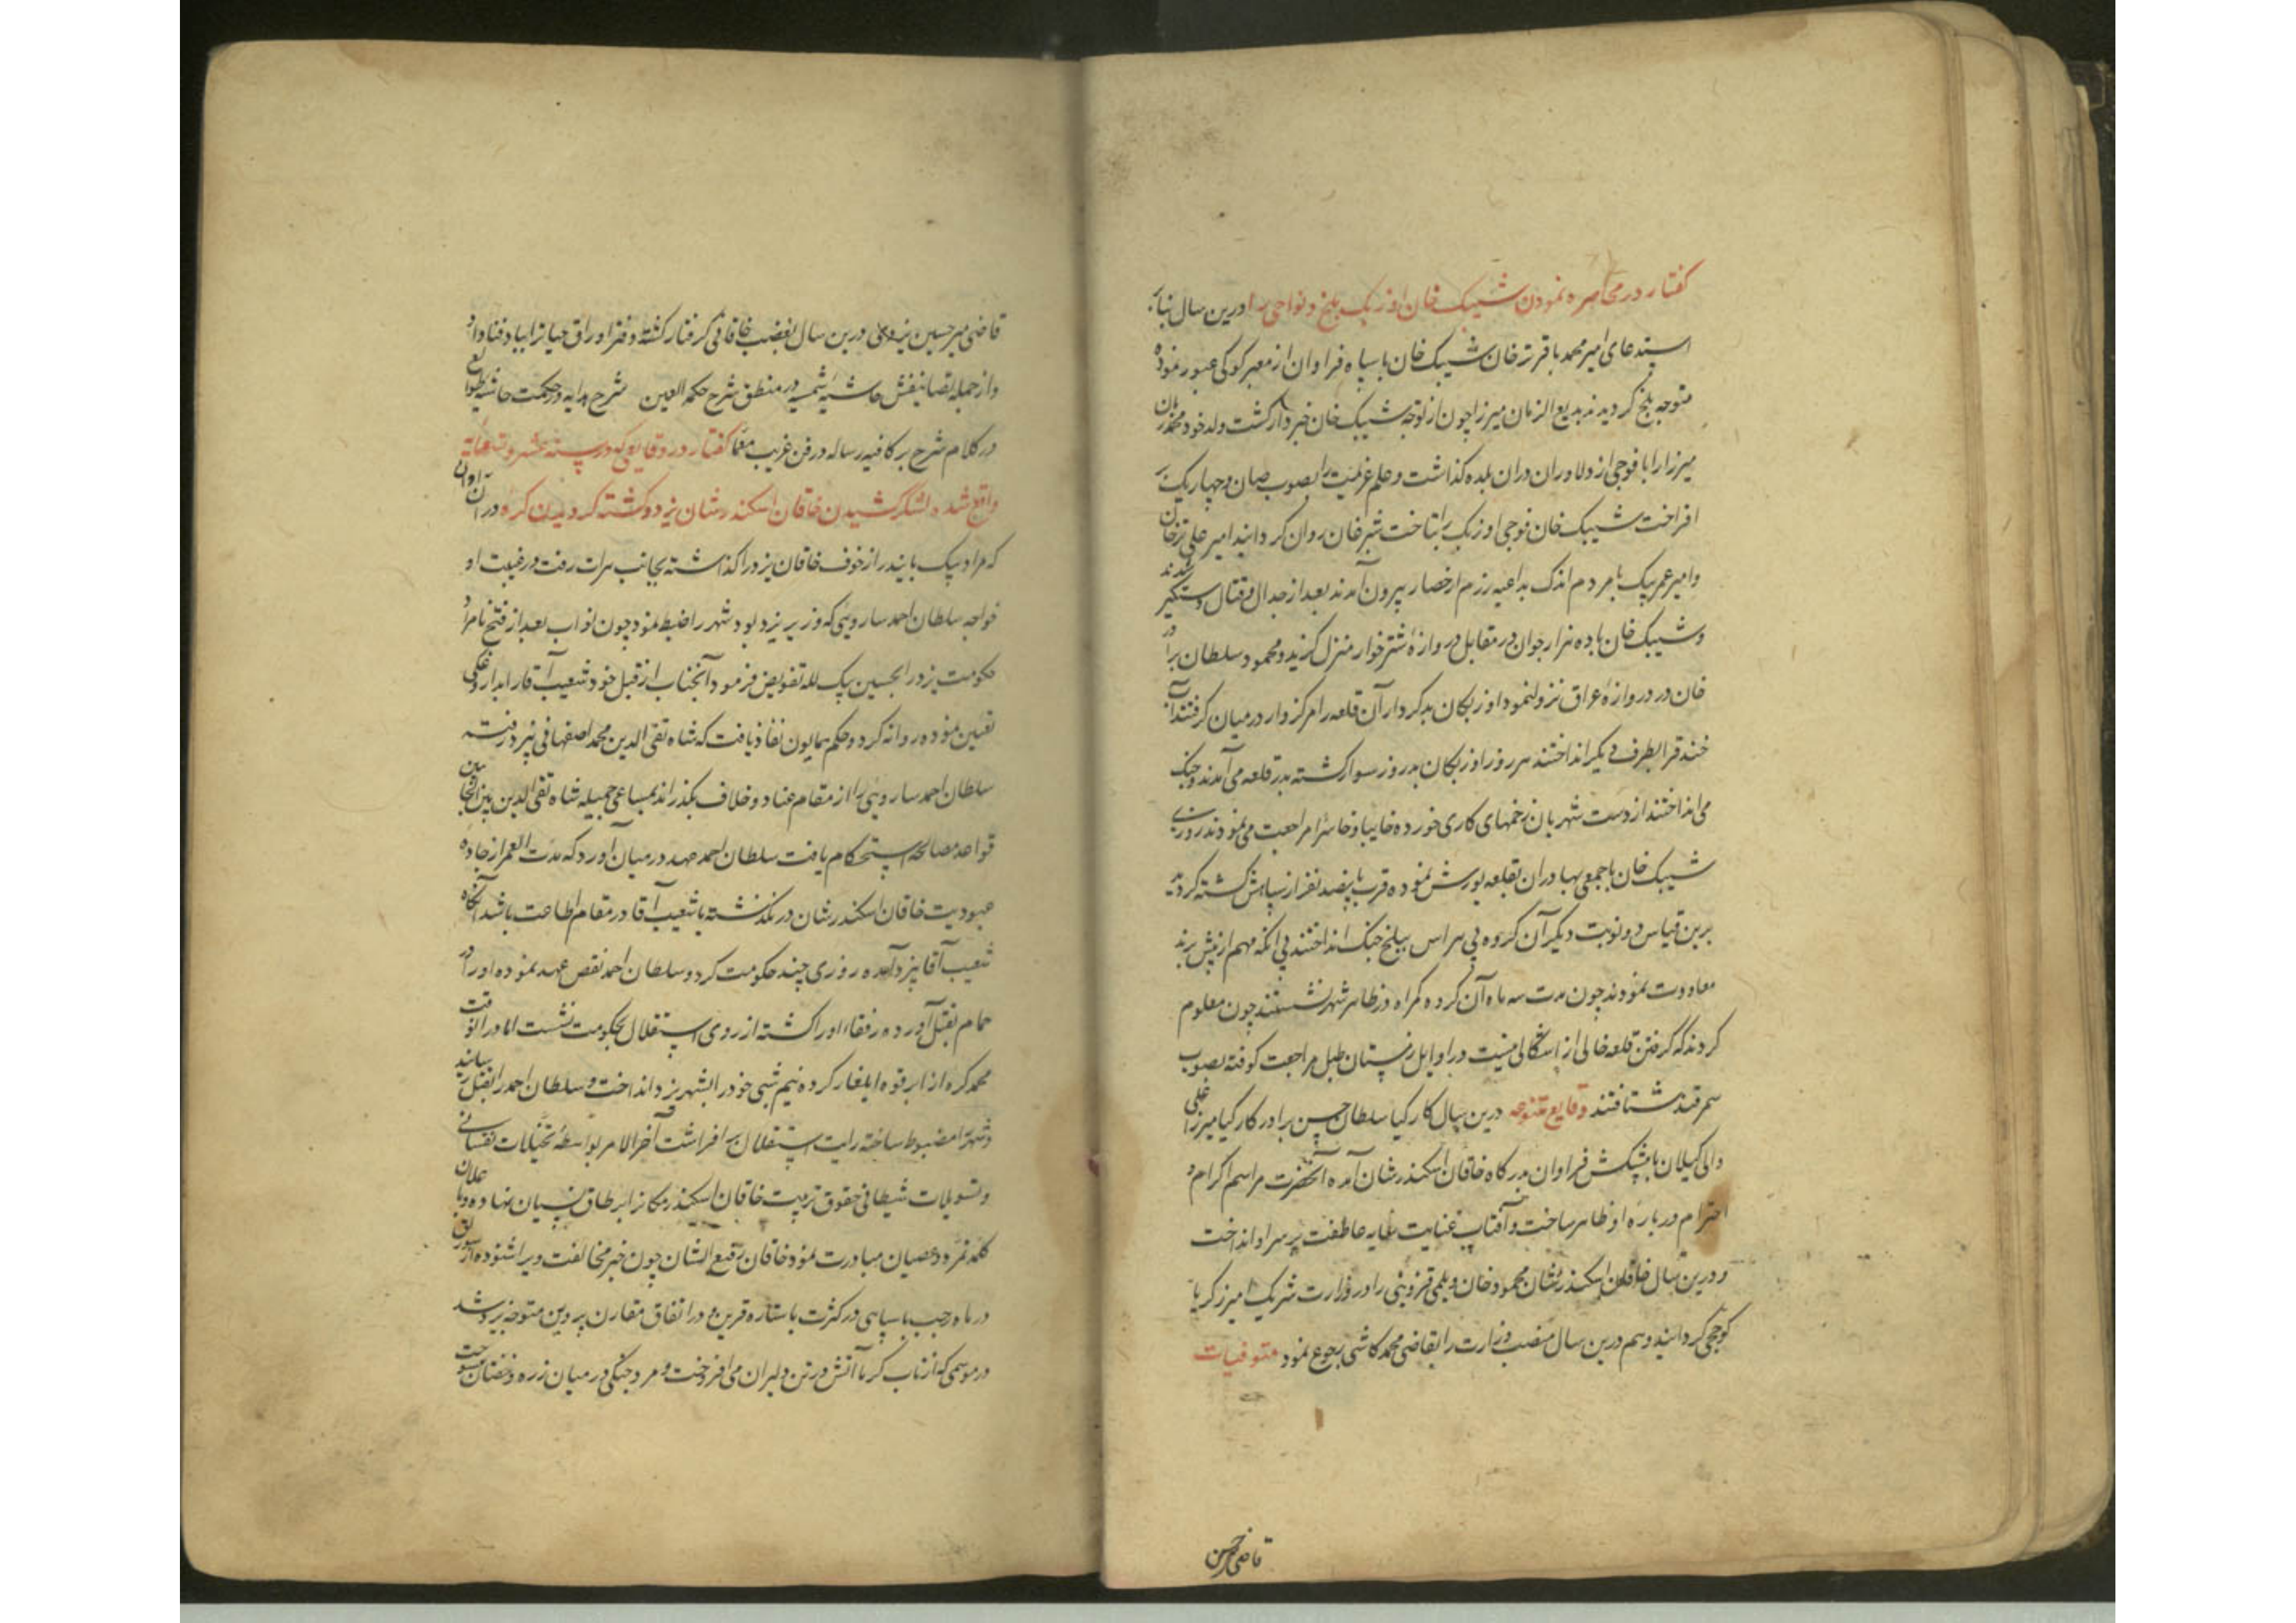 گفتار در محاصره نمودن شیبک خان اوزبک بلخ و نواحی را درین سال بنابر
استدعای امیر محمد باقر ترخان شیبک خان با سپاه فراوان از معبر کرکی عبور نموده
متوجه بلخ گردیدند بدیع الزمان میرزا چون از توجه شیبک خان خبردار گشت ولد خود محمد زمان
میرزا را با فوجی از دلاوران دران بلده گذاشت و علم عزیمت را بصوب صان و چهاریک بر
افراخت شیبک خان فوجی اوزبک را بتاخت شبرغان روان گردانید امیر علی ترخان
و امیر عمر بیک با مردم اندک بداعیه رزم از حصار بیرون آمدند بعد از جدال و قتال دستگیر شدند
و شیبک خان با ده هزار جوان در مقابل دروازهٔ شترخوار منزل گزید و محمود سلطان برادر
خان در دروازهٔ عراق نزول نمود اوزبکان بدکردار آن قلعه را مرکزوار در میان گرفتند آب
خندق را بطرف دیگر انداختند هر روز اوزبکان بدروز سوار گشته بدر قلعه می آمدند و جنک
می انداختند از دست شهریان زخمهای کاری خورده خایبا و خاسرا مراجعت می نمودند روزی
شیبک خان با جمعی بهادران بقلعه یورش نموده قرب پانصد نفر از سپاهش کشته گردید
برین قیاس دو نوبت دیگر آن گروه بی هراس ببلخ جنک انداختند بی انکه مهم از پیش برند
معاودت نمودند چون مدت سه ماه آن گروه گمراه در ظاهر شهر نشستند چون معلوم
کردند که گرفتن قلعه خالی از اشکالی نیست در اوایل زمستان طبل مراجعت کوفته بصوب
سمرقند شتافتند وقایع متنوعه درین سال کارکیا سلطان حسن برادر کارکیا میرزا علی
والی گیلان با پیشکش فراوان بدرگاه خاقان اسکندرشان آمده آنحضرت مراسم اکرام و
احترام دربارهٔ او ظاهر ساخت و آفتاب عنایت سایه عاطفت بر سر او انداخت
و درین سال خاقان اسکندرشان محمود خان دیلمی قزوینی را در وزارت شریک امیر زکریا
کوججی گردانید و هم درین سال منصب وزارت را بقاضی محمد کاشی رجوع نمود متوفیات
قاضی میر حسین
قاضی میر حسین یزدی درین سال بغضب خاقانی گرفتار گشته دفتر اوراق حیاتر ا بباد فنا داد
و از جمله تصانیفش حاشیه شمسیه در منطق شرح حکمه العین شرح هدایه در حکمت حاشیه طوالع
در کلام شرح بر کافیه رساله در فن غریب معما گفتار در وقایعی که در سنه عشر و تسعمائه
واقع شد و لشکر کشیدن خاقان اسکندرشان یزد و کشته گردیدن کره در آن اوان
که مراد بیک بایندر از خوف خاقان یزد را گذاشته بجانب هرات رفت در غیبت او
خواجه سلطان احمد ساروئی که وزیر یزد بود شهر را ضبط نمود چون نواب بعد از فتح نامزد
حکومت یزد را بحسین بیک لله تفویض فرمود آنجناب از قبل خود شعیب آقا را بداروغگی
تعیین نموده روانه کرد و حکم همایون نفاذ یافت که شاه تقی الدین محمد اصفهانی به یزد رفته
سلطان احمد ساروئی را از مقام عناد و خلاف بگذراند بمساعی جمیله شاه تقی الدین بین الجانبین
قواعد مصالحه استحکام یافت سلطان احمد عهد در میان آورد که مدت العمر از جاده
عبودیت خاقان اسکندرشان در نگذشته با شعیب آقا در مقام اطاعت باشد آنگاه
شعیب آقا بیزد آمده روزی چند حکومت کرد و سلطان احمد نقض عهد نموده او را در
حمام بقتل آورده رفقاء او را کشته از روی استقلال بحکومت نشست اما در انوقت
محمد کره از ابرقوه ایلغار کرده نیم شبی خود را بشهر یزد انداخت و سلطان احمد را بقتل رسانید
و شهر را مضبوط ساخته رایت استقلال بر افراشت آخر الامر بواسطهٔ تخیلات نفسانی
و تسویلات شیطانی حقوق تربیت خاقان اسکندرمکانرا بر طاق نسیان نهاده و با علان
کلمه تمرد و عصیان مبادرت نمود خاقان رفیع الشان چون خبر مخالفت ویرا شنوده از
در ماه رجب با سپاهی در کثرت با ستاره قرین و در اتفاق مقارن پروین متوجه یزد شد
در موسمی که از تاب گرما آتش در تن دلیران می افروخت و مرد جنگی در میان زره و خفتان میسوخت